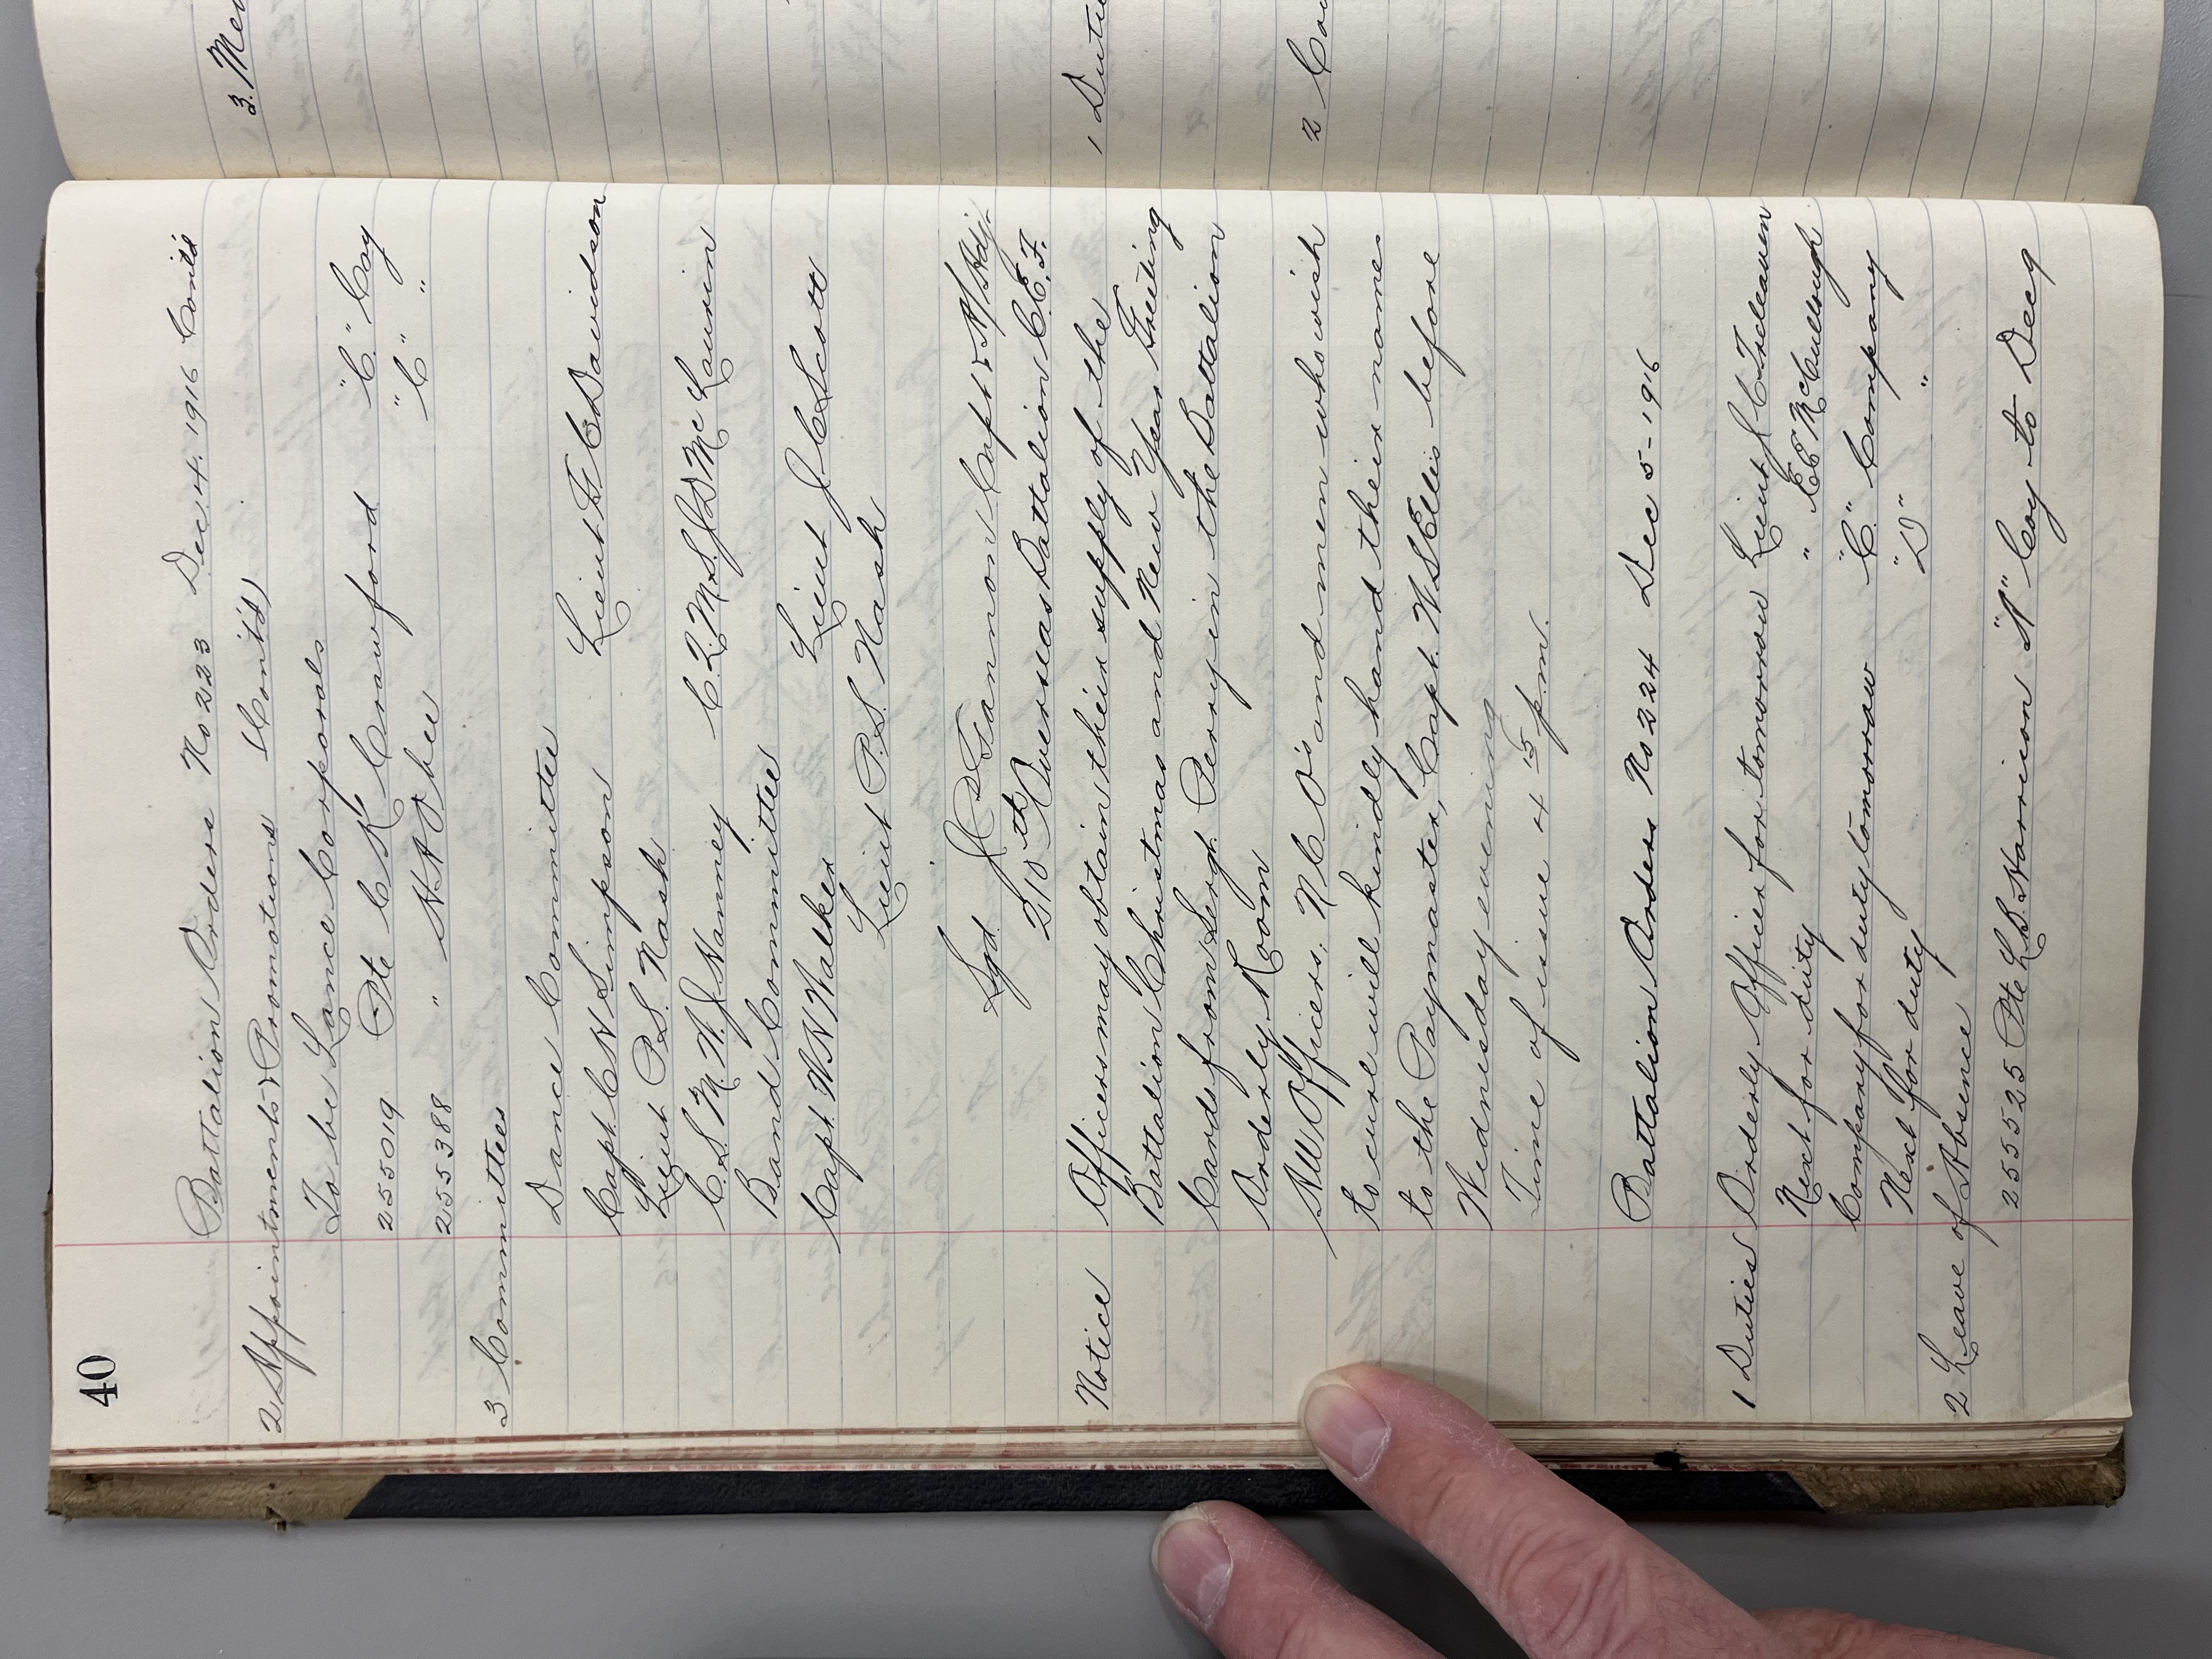 40
Battalion Orders No 223 Dec. 4. 1916 Cont'd
2 Appointments & Promotions (Cont'd)
To be Lance Corporals
255019 Pte C K Crawford "C" Coy
255388 " "C" "
3 Committees
Dance Committee
Capt. C H Simpson Lieut F C Davidson
Lieut P.S. Nash
C.S.M. N. J Hanney C.Q.M.S. J D McLaurin
Band Committee
Capt. W H Walker Lieut J C Scott
Lieut P.S. Nash
Sgd. J S Gannon Capt & A/Adj.
210th Overseas Battalion C.E.F.
Notice Officers may obtain their supply of the
Battalion Christmas and New Year Greeting
Cards from Sergt. Perry in the Battalion
Orderly Room
All Officers, N C O's and men who wish
to curl will kindly hand their name
to the Paymaster, Capt. W S Ellis before
Wednesday evening
Time of issue 4 15 p.m.
Battalion Orders No 224 Dec 5 - 1916
1 Duties Orderly Officer for tomorrow Lieut J C Treleaven
Next for duty " E E McCullough
Company for duty tomorrow "C" Company
Next for duty "D" "
2 Leave of Absence
255525 Pte L R. Harrison "A" Coy to Dec 9
3. Me
1 Dutie
2 Co